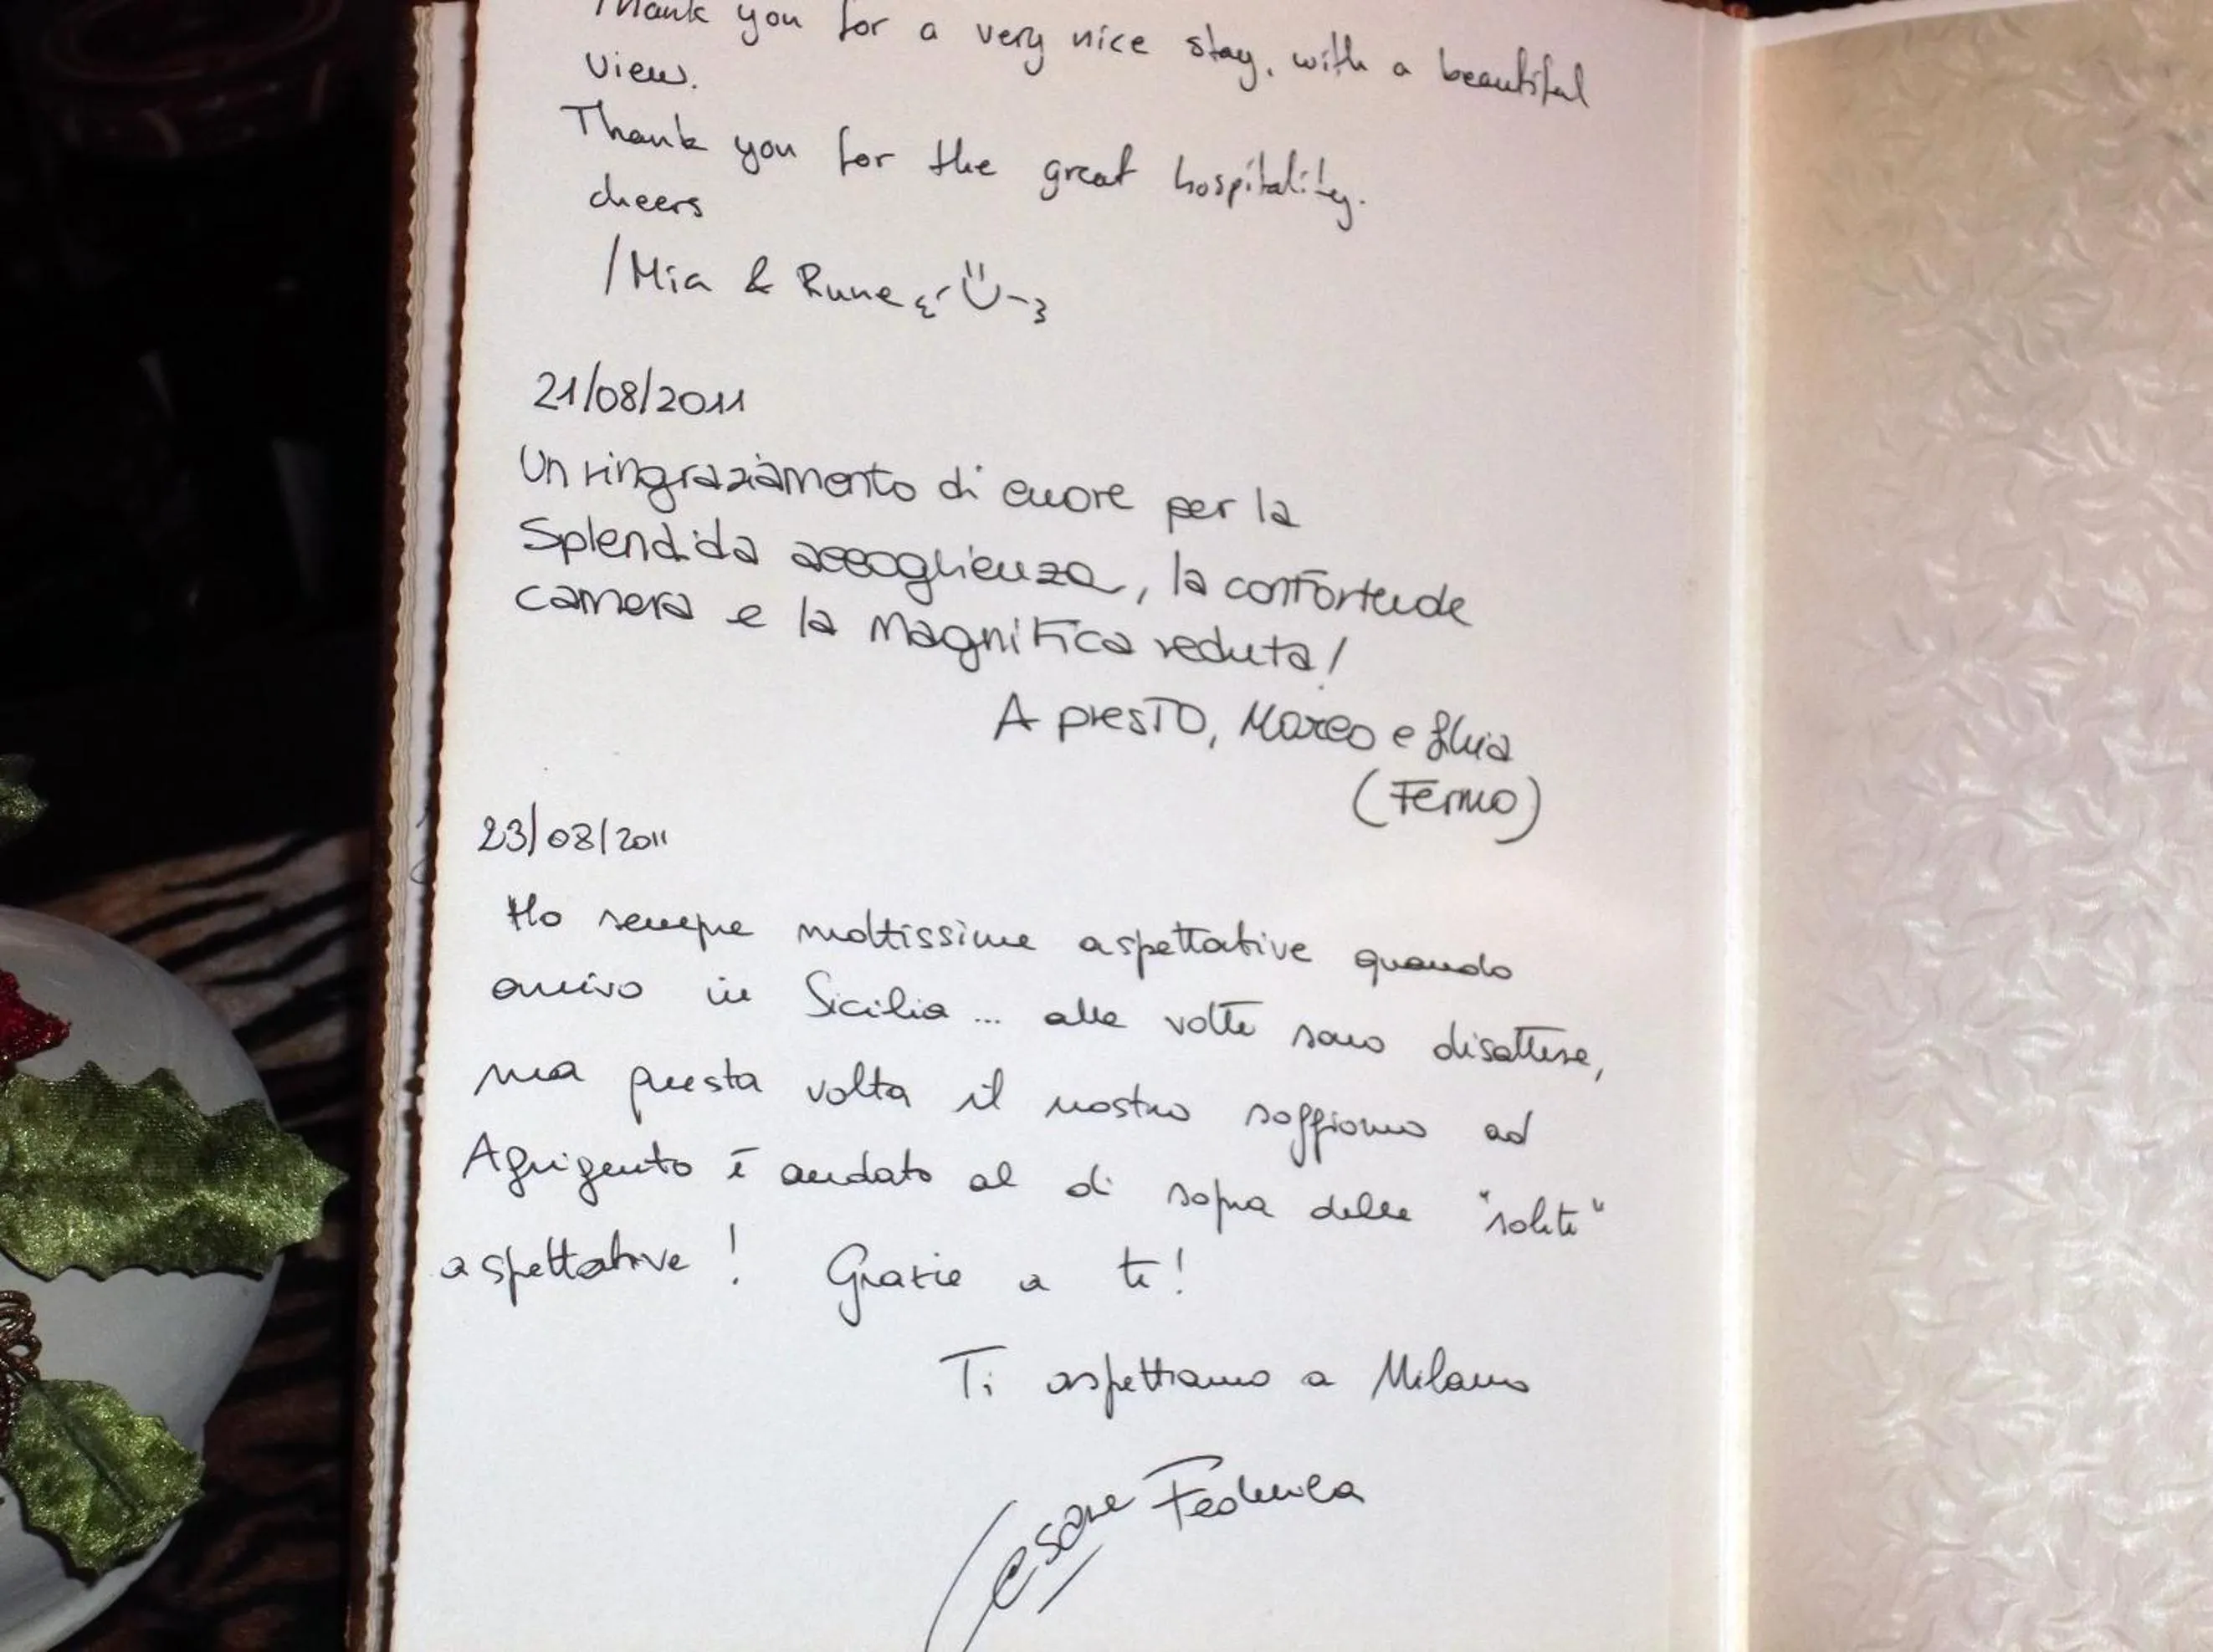 Thank you for a very nice stay, with a beautiful
view.
Thank you for the great hospitality.
cheers
/Mia & Rune
21/08/2011
Un ringraziamento di cuore per la
Splendida accoglienza, la confortevole
camera e la magnifica veduta!
A presto, Marco e
(Fermo)
23/08/2011
Ho sempre moltissime aspettative quando
arrivo in Sicilia... alle volte sono disattese,
ma questa volta il nostro soggiorno ad
Agrigento è andato al di sopra delle "solite"
aspettative! Grazie a te!
Ti aspettiamo a Milano
Cesare Federica